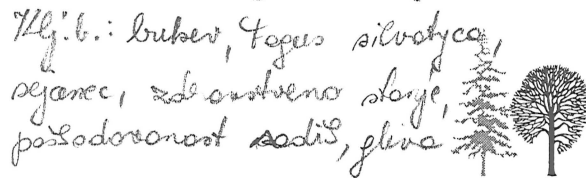 Klj. b.: bukev, Fagus silvatyca,
sejanec, zdravstveno stanje,
poškodovanost sadik, gliva